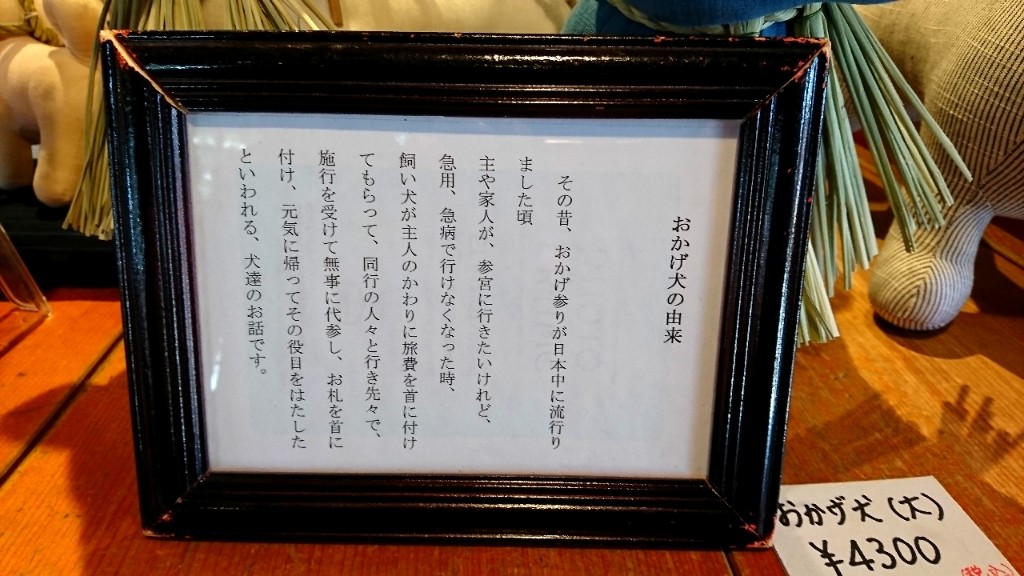 おかげ犬の由来
その昔、おかげ参りが日本中に流行り
ました頃
主や家人が、参宮に行きたいけれど、
急用、急病で行けなくなった時、
飼い犬が主人のかわりに旅費を首に付け
てもらって、同行の人々と行き先々で、
施行を受けて無事に代参し、お札を首に
付け、元気に帰ってその役目をはたした
といわれる、犬達のお話です。
おかげ犬(大)
¥4300
(税込)